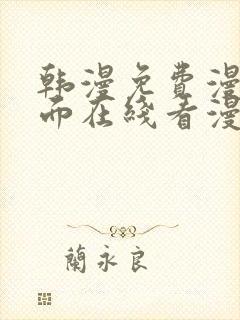 韩漫免费漫
而在线看漫
蘭永良